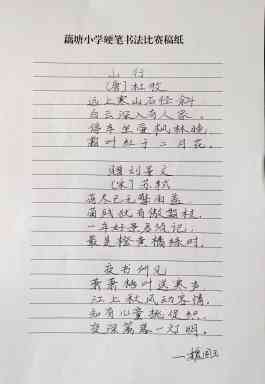 藕塘小学硬笔书法比赛稿纸
山行
（唐）杜牧
远上寒山石径斜
白云深入有人家，
停车坐爱枫林晚，
霜叶红于二月花。
赠刘景文
（宋）苏轼
荷尽已无擎雨盖，
菊残犹有傲霜枝，
一年好景君须记，
最是橙黄橘绿时。
夜书所见
萧萧梧叶送寒声
江上秋风动客情，
知有儿童挑促织，
夜深篱落一灯明。